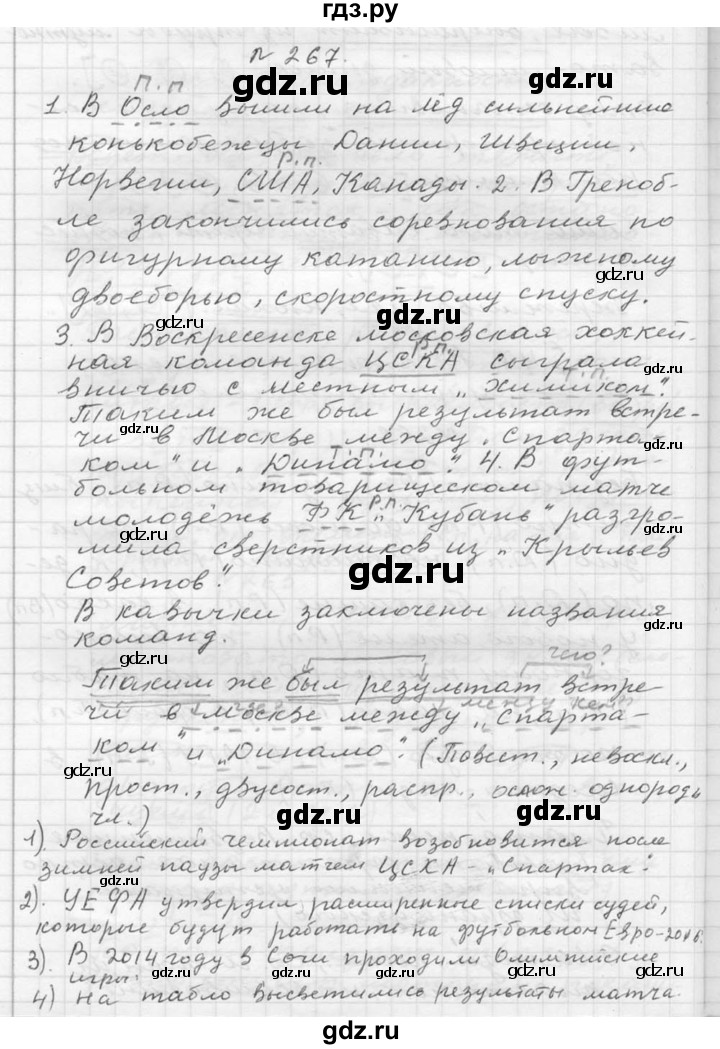 гдз.ру
N 267.
П.п
1. В Осло вышли на лёд сильнейшие
конькобежцы Дании, Швеции,
Р.п.
Норвегии, США, Канады. 2. В Греноб-
ле закончились соревнования по
фигурному катанию, лыжному
двоеборью, скоростному спуску.
3. В Воскресенске московская хоккей-
ная команда ЦСКА сыграла
вничью с местным „Химиком".
Таким же был результат встре-
чи в Москве между „Спарта-
ком" и „Динамо". 4. В фут-
больном товарищеском матче
молодёжь ФК „Кубань" разгро-
мила сверстников из „Крыльев
Советов".
В кавычки заключены названия
команд.
чего?
Таким же был результат встре-
чи в Москве между „Спарта-
ком" и „Динамо". (Повест., невоскл.,
прост., двусост., распр., ослож. однородн
чл.)
1). Российский чемпионат возобновится после
зимней паузы матчем ЦСКА - „Спартак".
2). УЕФА утвердил расширенные списки судей,
которые будут работать на футбольном Евро-2016.
3). В 2014 году в Сочи проходили Олимпийские
игры.
4) На табло высветились результаты матча.
gdz.ru